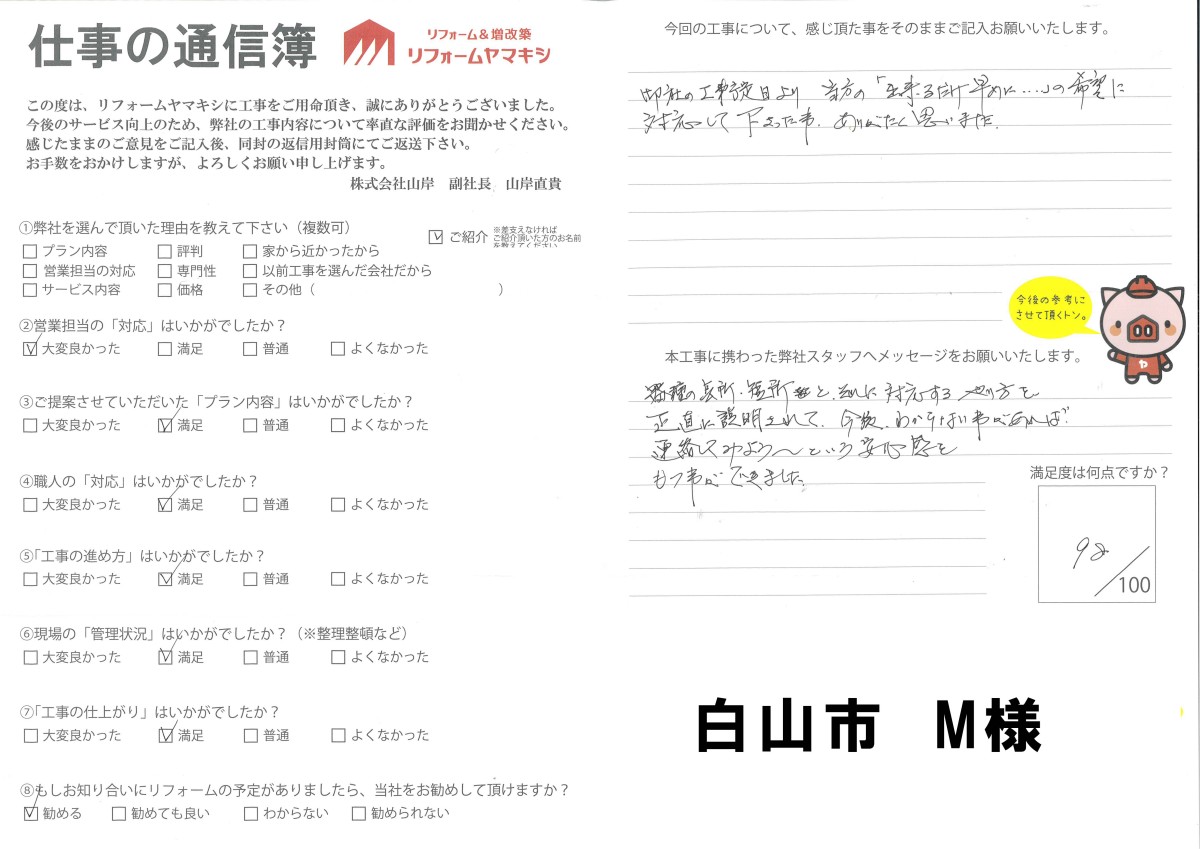 仕事の通信簿
リフォーム&増改築
リフォームヤマキシ
この度は、リフォームヤマキシに工事をご用命頂き、誠にありがとうございました。
今後のサービス向上のため、弊社の工事内容について率直な評価をお聞かせください。
感じたままのご意見をご記入後、同封の返信用封筒にてご返送下さい。
お手数をおかけしますが、よろしくお願い申し上げます。
株式会社山岸 副社長 山岸直貴
①弊社を選んで頂いた理由を教えて下さい（複数可）
☐プラン内容 ☐評判 ☐家から近かったから
☐営業担当の対応 ☐専門性 ☐以前工事を選んだ会社だから
☐サービス内容 ☐価格 ☐その他（ ）
☑ご紹介
※差支えなければ
ご紹介頂いた方のお名前
を教えてください
②営業担当の「対応」はいかがでしたか？
☑大変良かった ☐満足 ☐普通 ☐よくなかった
③ご提案させていただいた「プラン内容」はいかがでしたか？
☐大変良かった ☑満足 ☐普通 ☐よくなかった
④職人の「対応」はいかがでしたか？
☐大変良かった ☑満足 ☐普通 ☐よくなかった
⑤「工事の進め方」はいかがでしたか？
☐大変良かった ☑満足 ☐普通 ☐よくなかった
⑥現場の「管理状況」はいかがでしたか？（※整理整頓など）
☐大変良かった ☑満足 ☐普通 ☐よくなかった
⑦「工事の仕上がり」はいかがでしたか？
☐大変良かった ☑満足 ☐普通 ☐よくなかった
⑧もしお知り合いにリフォームの予定がありましたら、当社をお勧めして頂けますか？
☑勧める ☐勧めても良い ☐わからない ☐勧められない
今回の工事について、感じ頂た事をそのままご記入お願いいたします。
御社の工事設定日より 当方の「出来るだけ早めに....」の希望に
対応して下さった事、ありがたく思いました。
今後の参考に
させて頂くトン。
ヤ
本工事に携わった弊社スタッフへメッセージをお願いいたします。
の長所・短所と、それに対応する やり方を
正直に説明されて、今後、わからない事があれば
連絡してみよう〜という安心感を
もつ事ができました。
満足度は何点ですか？
98/100
白山市 M様